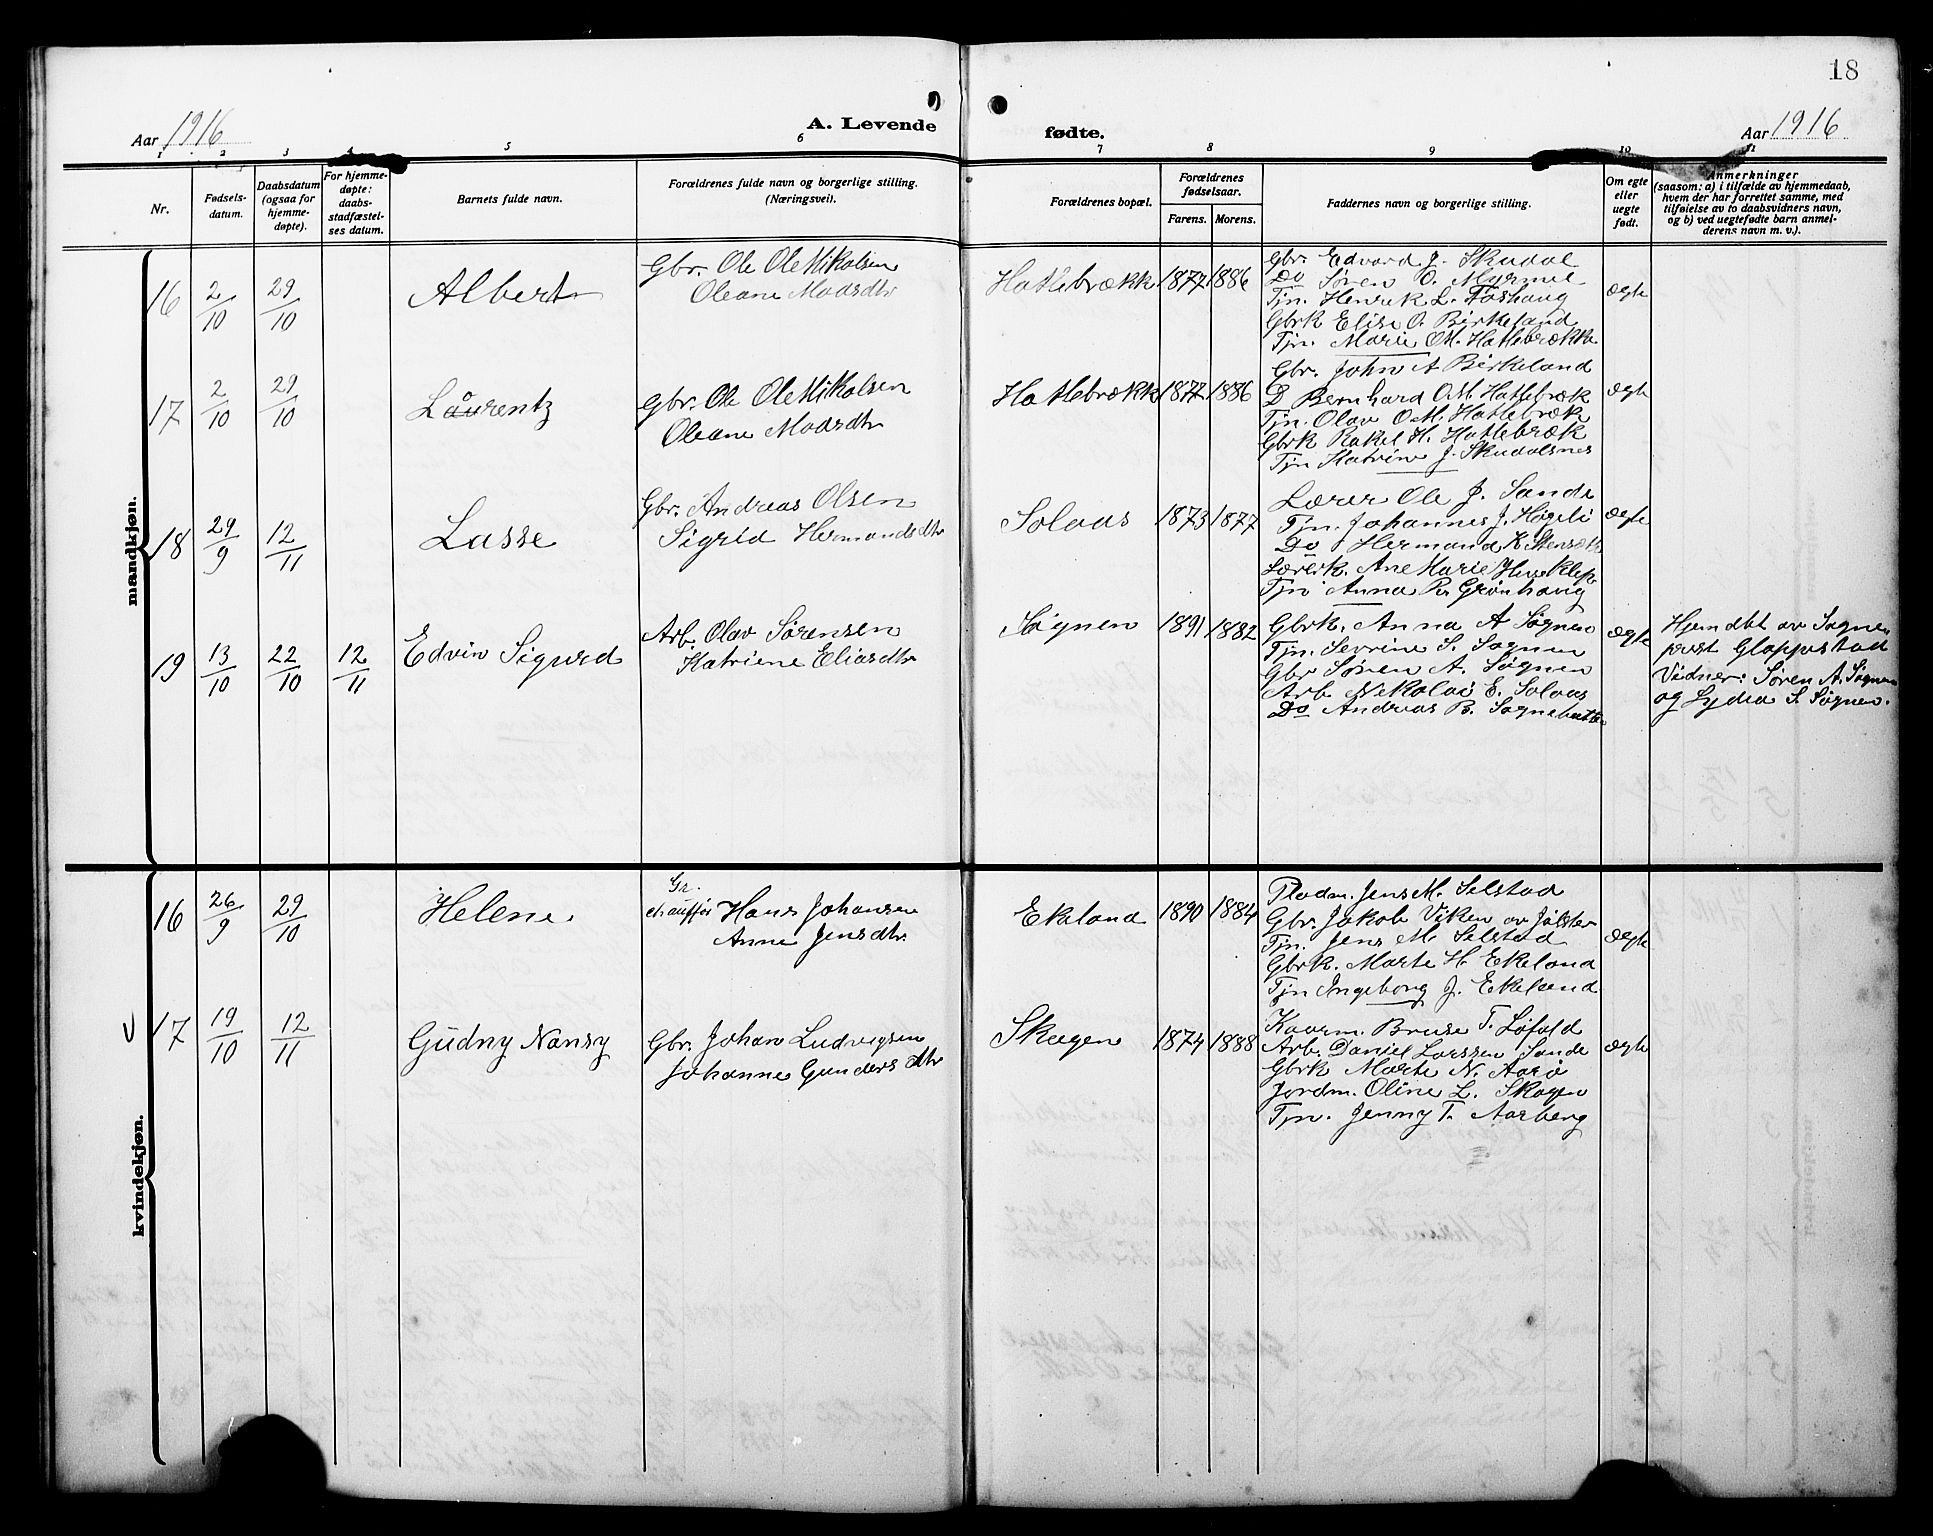 18
Aar 1916
A. Levende
fødte.
Aar 1916
1 2 3 4 5 6 7 8 9 10 11
Nr.
Fødsels-
datum.
Daabsdatum
(ogsaa for
hjemme-
døpte).
For hjemme-
døpte:
daabs-
stadfæstel-
ses datum.
Barnets fulde navn.
Forældrenes fulde navn og borgerlige stilling.
(Næringsvei).
Forældrenes bopæl.
Forældrenes
fødselsaar.
Farens. Morens.
Faddernes navn og borgerlige stilling.
Om egte
eller
uegte
født.
Anmerkninger
(saasom: a) i tilfælde av hjemmedaab,
hvem der har forrettet samme, med
tilføielse av to daabsvidners navn,
og b) ved uegtefødte barn anmel-
derens navn m. v.).
mandkjøn.
16 2/10 29/10 Albert
Gbr. Ole Ole Mikalsen
Oleane Madsdtr
Hatlebrække 1877 1886
Gbr. Edvard J. Skudal
Do Søren O. Myrmel
Tjn. Henrik L. Foshaug
Gbrk Elise O. Birkeland
Tjn. Marie O.M. Hatlebrække
ægte
17 2/10 29/10 Laurentz
Gbr. Ole Ole Mikalsen
Oleane Madsdtr
Hatlebrække 1877 1886
Gbr. John A Birkeland
D Bernhard O.M. Hatlebræk
Tjn. Olav O.M. Hatlebræk
Gbrk Rakel H. Hatlebræk
Tjn Katrine J. Skudalsnes
ægte
18 29/9 12/11 Lasse
Gbr. Andreas Olsen
Sigrid Hermandsdtr
Solaas 1873 1877
Lærer Ole J. Sande
Tjn. Johannes J. Høgeli
Do Hermand K
Lærerk. Ane Marie
Tjn Anna Grønhaug
ægte
19 13/10 22/10 12/11 Edvin Sigurd
Arb. Olav Sørensen
Katrine Eliasdtr
Søgnen 1891 1882
Gbrk. Anna A Søgnen
Tjn. Sevrine S. Søgnen
Gbr Søren A. Søgnen
Arb. Nikolai E. Solaas
Do Andreas B.
ægte
Hjemdbt av Sogne-
prest Gloppestad
Vidner: Søren A. Søgnen
og Lydia S. Søgnen.
kvindekjøn.
16 26/9 29/10 Helene
Gr.
chauffør Hans Johansen
Anne Jensdtr.
Ekeland 1890 1884
Pladm. Jens M. Selstad
Gbr. Jakob Viken av Jølster
Tjn. Jens M. Selstad
Gbrk. Marte H. Ekeland
Tjn Ingeborg J. Ekeland
ægte
17 19/10 12/11 Gudny Nansy
Gbr. Johan Ludvigsen
Johanne Gundersdtr
Skagen 1874 1888
Kaarm. Bruse T. Løfald
Arb. Daniel Larssen Sande
Gbrk Marte N. Aarø
Jordm. Oline L. Skagen
Tjn. Jenny T. Aarberg
ægte